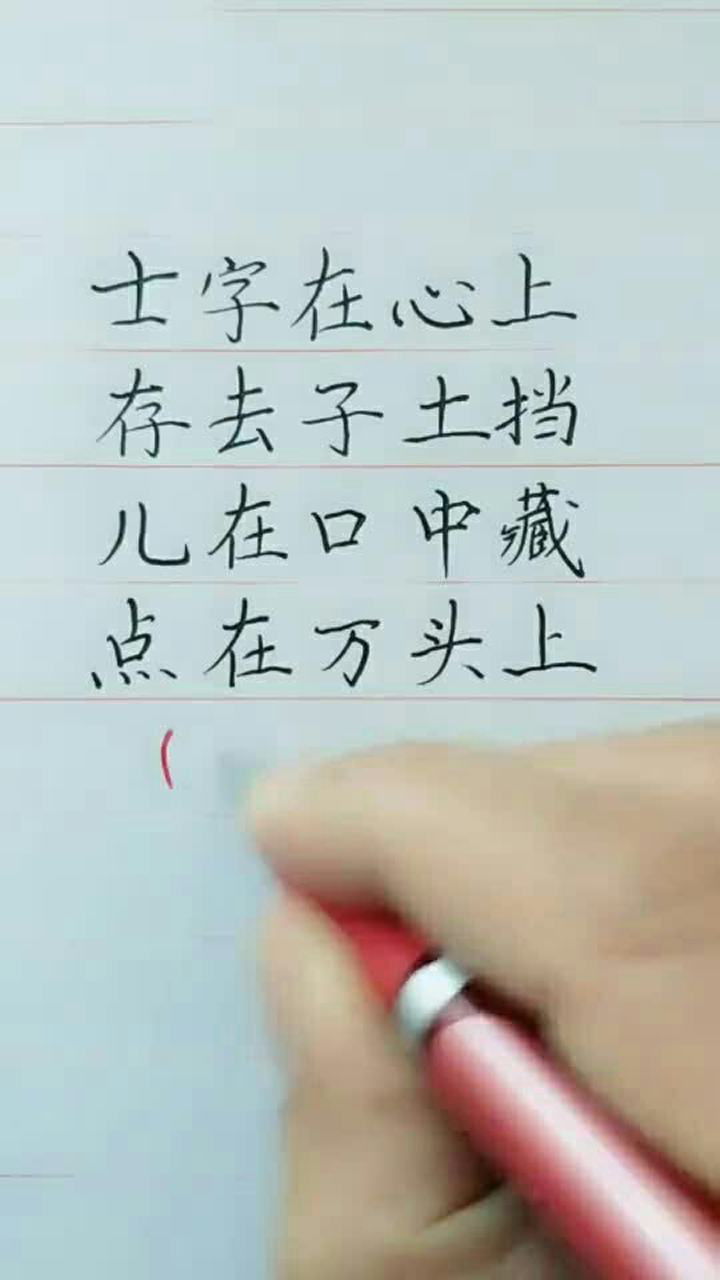 士字在心上
存去子土挡
儿在口中藏
点在万头上
(